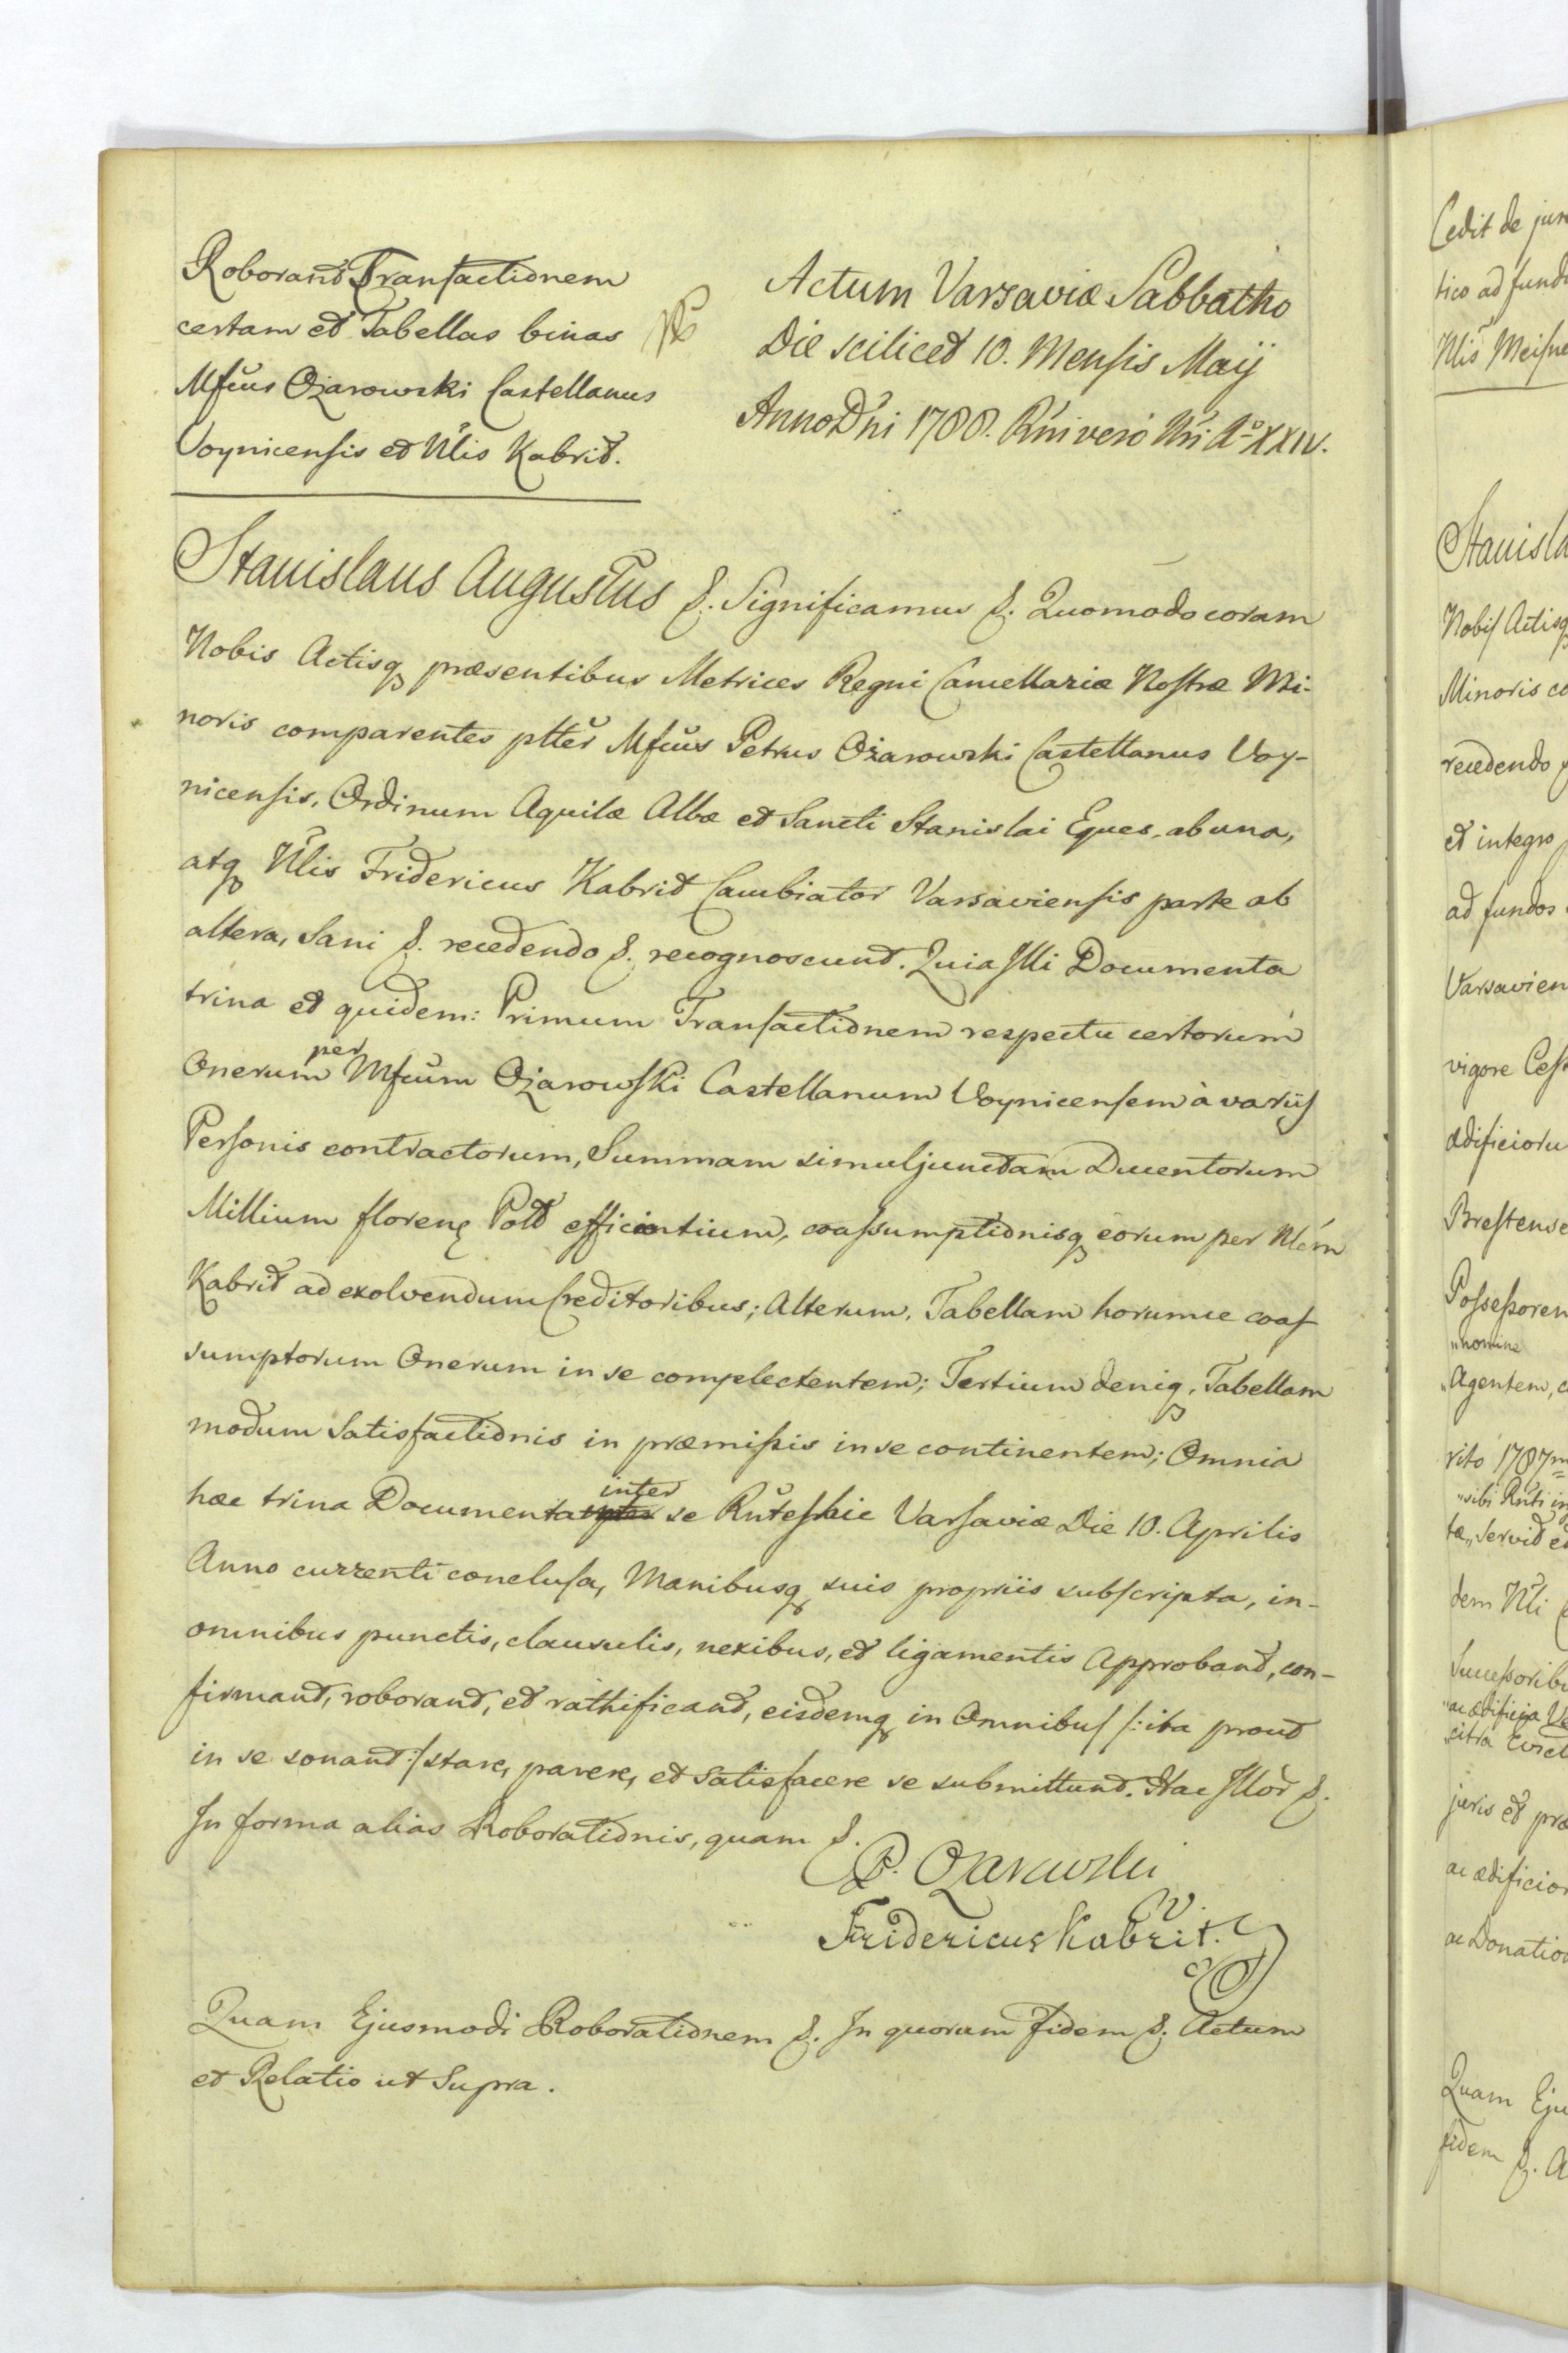 Roborand Transactionem
certam et Tabellas binas
Mfcus Ożarowski Castellanus
Voynicensis et Nlis Kabrit.
Actum Varsaviæ Sabbatho
Die scilicet 10. Mensis Maij
Anno Dni 1788. Rni vero Nri Ao XXIV.
Stanislaus Augustus &. Significamus &. Quomodo coram
Nobis Actisq præsentibus Metrices Regni Cancellariæ Nostræ Mi-
noris comparentes ptter Mfcus Petrus Ożarowski Castellanus Voy-
nicensis, Ordinum Aquilæ Albæ et Sancti Stanislai Eques, ab una,
atq Nlis Fridericus Kabrit Cambiator Varsaviensis parte ab
altera, Sani &. recedendo &. recognoscunt. Quia Illi Documenta
trina et quidem: Primum Transactionem respectu certorum
Onerum per Mfcum Ożarowski Castellanum Voynicensem à varijs
Personis contractorum, Summam simul junctam Ducentorum
Millium floren Pold efficientium, coassumptionisq eorum per Nlem
Kabrit ad exolvendum Creditoribus; Alterum, Tabellam horumce coas
sumptorum Onerum in se complectentem; Tertium deniq, Tabellam
modum Satisfactionis in præmissis in se continentem; Omnia
hæc trina Documenta inter se Rntes hic Varsaviæ Die 10. Aprilis
Anno currenti conclusa, Manibusq suis propriis subscripta, in-
omnibus punctis, clausulis, nexibus, et ligamentis Approbant, con-
firmant, roborant, et rathificant, eisdemq in Omnibus /: ita prout
in se sonant :/ stare, parere, et Satisfacere se submittunt. Hac Illor &.
In forma alias Roborationis, quam &.
P. Ożarowski
Fridericus Kabrit.
Quam Ejusmodi Roborationem &. In quorum fidem &. Actum
et Relatio ut Supra.
Cedit de jure
tico ad fund
Nlis Meisne
Stanisla
Nobis Actisq
Minoris co
recedendo
et integro
ad fundos
Varsavien
vigore Cess
ædificioru
Brestense
Possessorem
"nomine
"Agentem, c
rito 1787m
"sibi Rnti in
tæ „ servit et
dem Nli
Successorib
"ac ædificia Ve
"citra Evict
juris et pra
ac ædificior
ac Donation
Quam Eju
fidem &. A